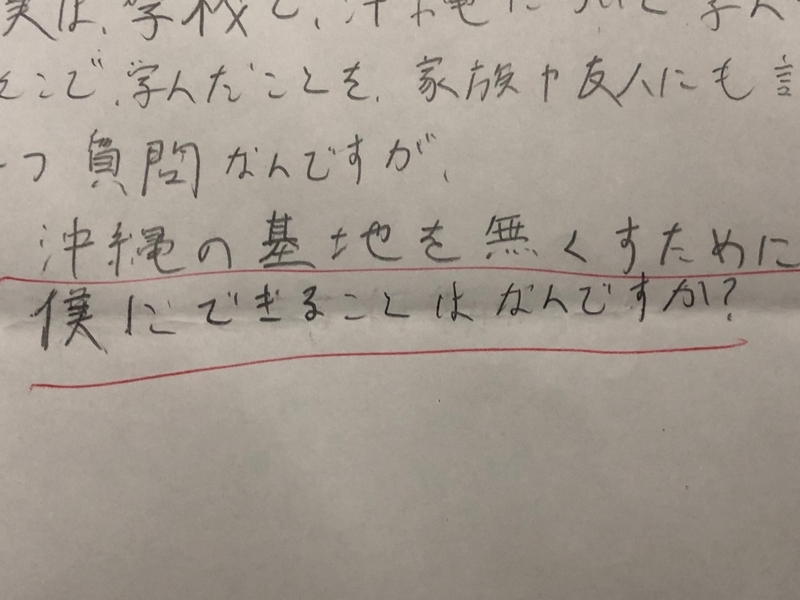 実は、学校で、沖縄について学ん
そこで、学んだことを、家族や友人にも言
一つ質問なんですが、
沖縄の基地を無くすために
僕にできることはなんですか?